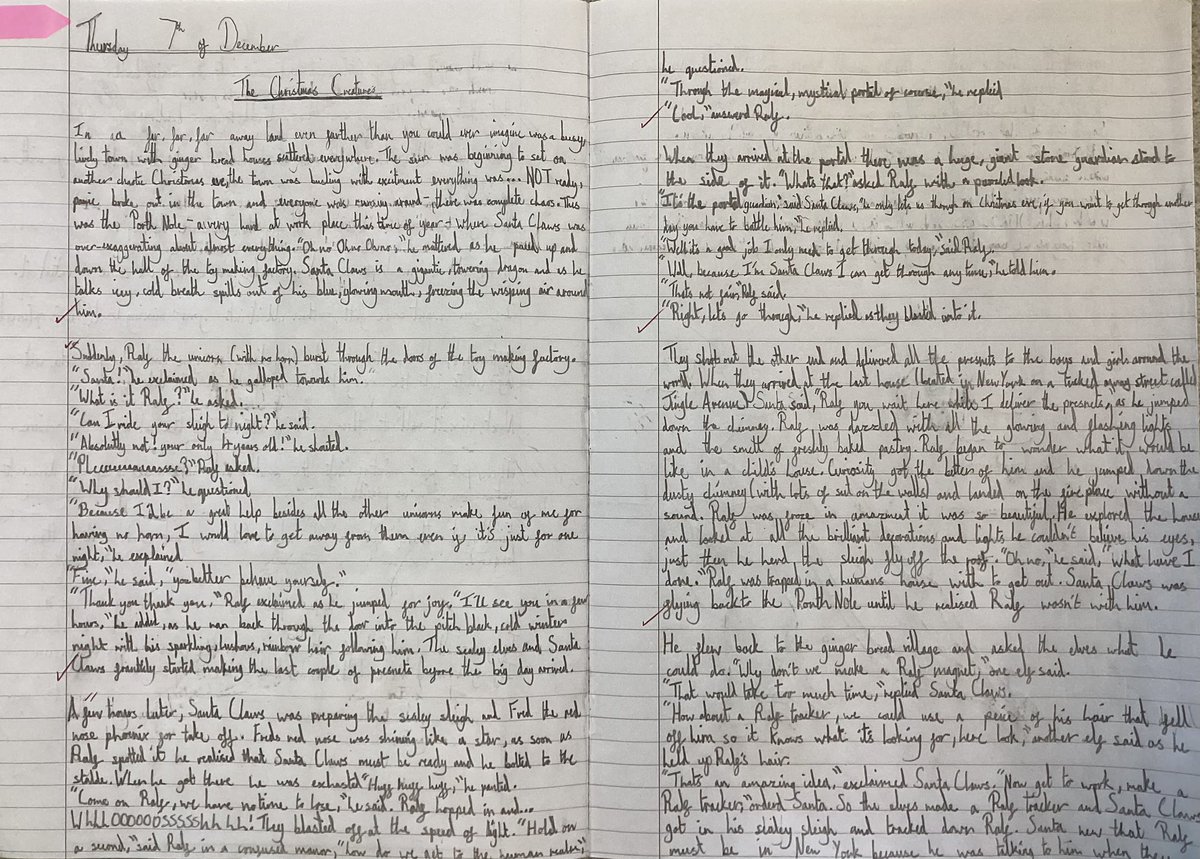 Thursday 7th of December
The Christmas Creatures
In a far, far, far away land even farther than you could ever imagine was a busy,
lively town with ginger bread houses everywhere. The sun was beginning to set on
another chaotic Christmas eve, the town was with excitment everything was... NOT ready,
panic broke out in the town and everyone was around - there was complete chaos. This
was the Porth Nole - a very hard at work place this time of year - where Santa Claws was
over-exaggerating about almost everything. "Oh no Oh no Oh no," he muttered as he up and
down the hall of the toy making factory. Santa Claws is a gigantic, towering dragon and as he
talks icy, cold breath spills out of his blue, glowing mouth, freezing the wisping air around
him.
Suddenly, Ralf the unicorn (with no horn) burst through the doors of the toy making factory.
"Santa!" he exclaimed as he galloped towards him."
"What is it Ralf?" he asked.
"Can I ride your sleigh to night?" he said.
"Absolutly not! your only 4 years old!" he shouted.
"Ralf asked.
"Why should I?" he questioned
"Because I'd be a great help besides all the other unicorns make fun of me for
having no horn, I would love to get away from them even if it's just for one
night," he explained
"Fine," he said, "you better behave yourself."
"Thank you thank you," Ralf exclaimed as he jumped for joy, "I'll see you in a few
hours," he added, as he ran back through the door into the pitch black, cold winter
night with his sparkling, lushous, rainbow hair following him. The elves and Santa
Claws started making the last couple of presnets before the big day arrived.
A few hours later, Santa Claws was preparing the sleigh and Fred the red
nose phoenix for take off. Freds red nose was shining like a star, as soon as
Ralf spotted it he realised that Santa Claws must be ready and he bolted to the
stable. When he got there he was "Huff huff huff," he panted.
"Come on Ralf, we have no time to lose," he said. Ralf hopped in and...
They blasted off at the speed of light. "Hold on
a second," said Ralf in a confused manor, "how do we get to the human realm,"
he questioned.
"Through the magical, mystical portal of he
"Cool," answerd Ralf.
When they arrived at the portal there was a huge, giant stone guardian stood to
the side of it. "Whats that?" asked Ralf with a look.
"It's the portal guardian," said Santa Claws, "is only lets us through on Christmas eve, if you want to get through another
day you have to battle him," he replied.
"Well its a good job I only need to get through today," said Ralf.
"Well, because I'm Santa Claws I can get through any time," he told him.
"Thats not fair," Ralf said.
"Right, lets go through," he replied as they blasted into it.
They shot out the other end and delivered all the presnets to the boys and girls around the
world. When they arrived at the last house (located in New York on a tucked away street called
Jingle Avenue) Santa said, "Ralf you wait here while I deliver the presnets," as he jumped
down the chimney. Ralf was dazzled with all the glowing and flashing lights
and the smell of freshly baked pastry. Ralf began to wonder what it would be
like in a child's house. Curiosity got the better of him and he jumped down the
dusty chimney (with lots of sut on the walls) and landed on the fire place without a
sound. Ralf was froze in amazment it was so beautiful. He explored the house
and looked at all the brilliant decorations and lights he couldn't believe his eyes,
just then he herd the sleigh fly off the roof. "Oh no," he said, "what have I
done." Ralf was trapped in a humans house with to get out. Santa Claws was
flying back to the Ponth Nole until he realised Ralf wasn't with him.
He flew back to the ginger bread village and asked the elves what he
could do. "Why don't we make a Ralf magnet," one elf said.
"That would take too much time," replied Santa Claws.
"How about a Ralf tracker, we could use a peice of his hair that fell
off him so it knows what it's looking for, here look," another elf said as he
held up Ralf's hair.
"Thats an amazing idea," exclaimed Santa Claws. "Now get to work, make a
Ralf tracker," orderd Santa. So the elves made a Ralf tracker and Santa Claws
got in his sleigh and tracked down Ralf. Santa new that Ralf
must be in New York because he was talking to him when they